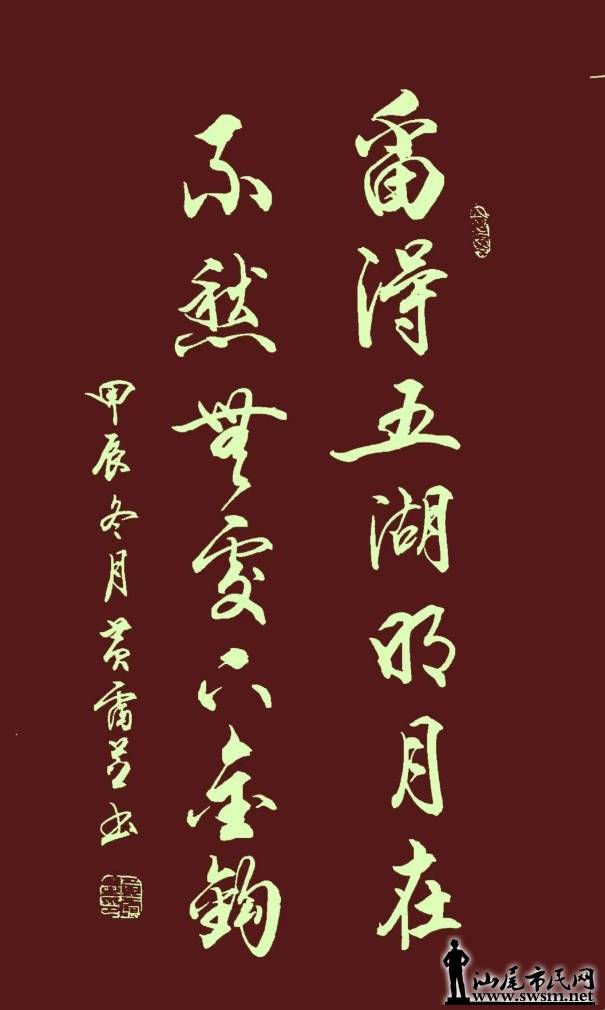 留得五湖明月在
不愁無處下金鉤
甲辰冬月黄書
汕尾市民网
www.swsm.net